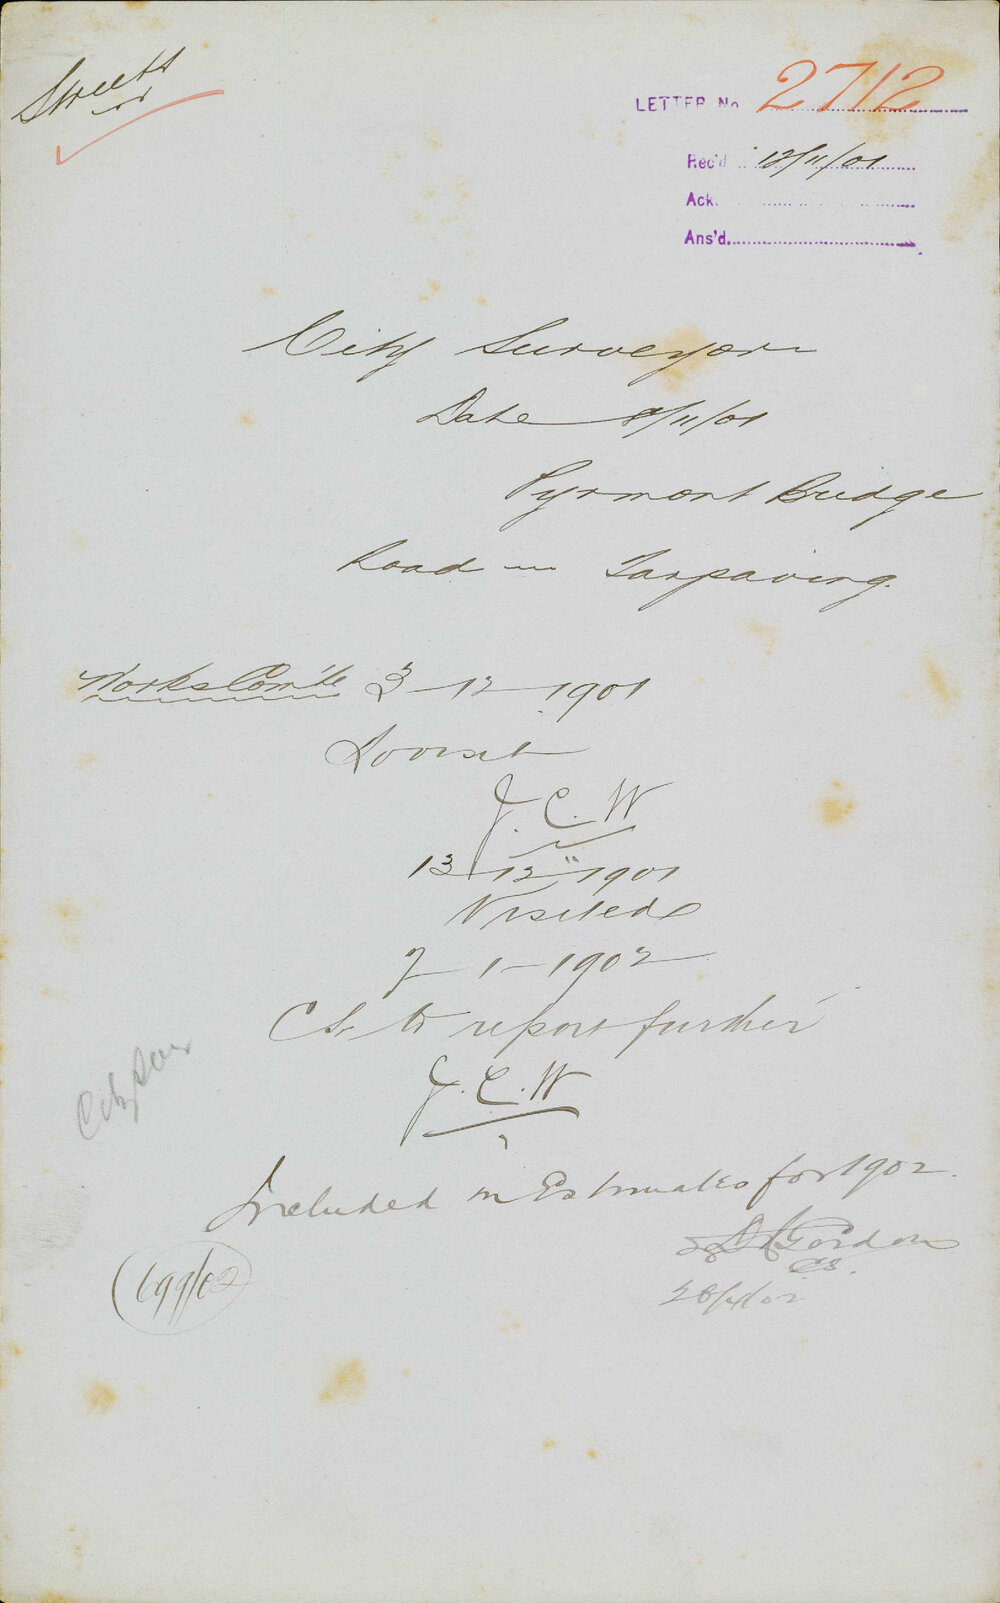 Streets
LETTER No 2712
Rec'd 12/11/01
Ack.
Ans'd.
City Surveyor
Date 8/11/01
Pyrmont Bridge
Road — Tarpaving.
Works Com'te 3-12-1901
To visit
J.C.W
13-12-1901
Visited
7-1-1902
C.S. to report further
J.C.W
City Sur
Included in Estimates for 1902.
Gordon
CS.
(699/02)